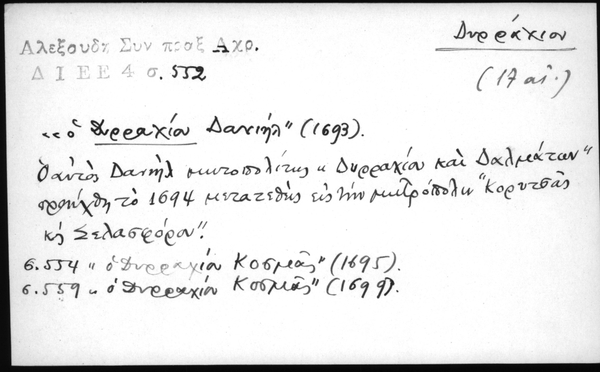 Δυρράχιον
Αλεξουδη Συν πραξ Αχρ.
Δ Ι Ε Ε 4 σ. 552
(17 αἰ.)
«ὁ Δυρραχίου Δανιήλ" (1693).
Ὁ αὐτὸς Δανιὴλ μητροπολίτης „Δυρραχίου καὶ Δαλματῶν"
προήχθη τὸ 1694 μετατεθεὶς εἰς τὴν μητρόπολιν "Κορυτσᾶς
κὴ Σελασφόρου".
σ. 554 „ὁ Δυρραχίου Κοσμᾶς" (1695).
σ. 559 „ὁ Δυρραχίου Κοσμᾶς" (1699).